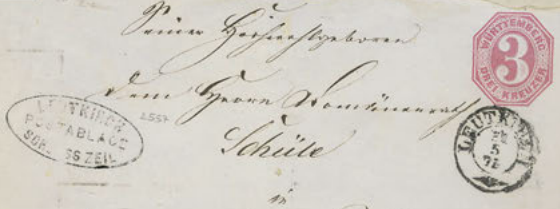 Seiner Hochwohlgeboren
WÜRTTEMBERG
3
DREI KREUZER
dem Herrn Domänenrath
2557
LEUTKIRCH
POSTABLAGE
SCHLOSS ZEIL
Schüle
LEUTKIRCH
5
in